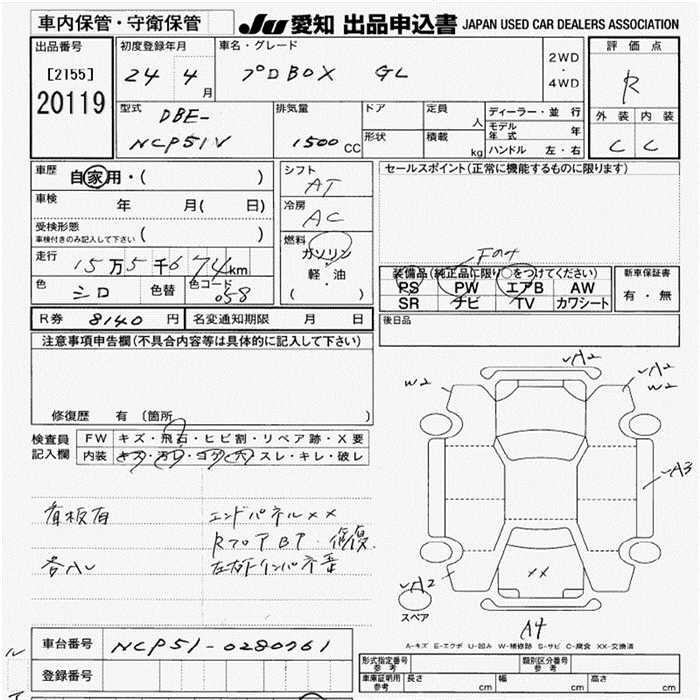 車内保管・守衛保管
JU 愛知 出品申込書 JAPAN USED CAR DEALERS ASSOCIATION
出品番号
[2155]
20119
初度登録年月
24 4
月
車名・グレード
プロBOX GL
2WD
・
4WD
評価点
R
外装 内装
C C
型式
DBE-
NCP51V
排気量
1500 CC
ドア
形状
定員
人
積載
kg
ディーラー・並行
モデル年式 年
ハンドル 左・右
車歴
自家用・( )
車検
年 月( 日)
受検形態
車検付きのみ記入して下さい
走行
15万5千674km
色
シロ
色替
色コード
058
シフト
AT
冷房
AC
燃料
ガソリン
軽・油
( )
セールスポイント(正常に機能するものに限ります)
装備品(純正品に限り○をつけてください)
PS PW エアB AW
SR ナビ TV カワシート
新車保証書
有・無
後日品
R券 8140 円
名変通知期限 月 日
注意事項申告欄(不具合内容等は具体的に記入して下さい)
修復歴 有(箇所 )
検査員
記入欄
FW キズ・飛石・ヒビ割・リペア跡・X要
内装 キズ・汚レ・コゲ・穴・スレ・キレ・破レ
看板有
エンドパネルXX
RフロアBP・修復
W2
A2
A2
W2
A3
A2
XX
A4
スペア
A-キズ E-エクボ U-凹み W-補修跡 S-サビ C-腐食 XX-交換済
車台番号 NCP51-0280761
登録番号
形式指定番号
参考
類別区分番号
参考
車庫証明用
参考
長さ cm
幅 cm
高さ cm